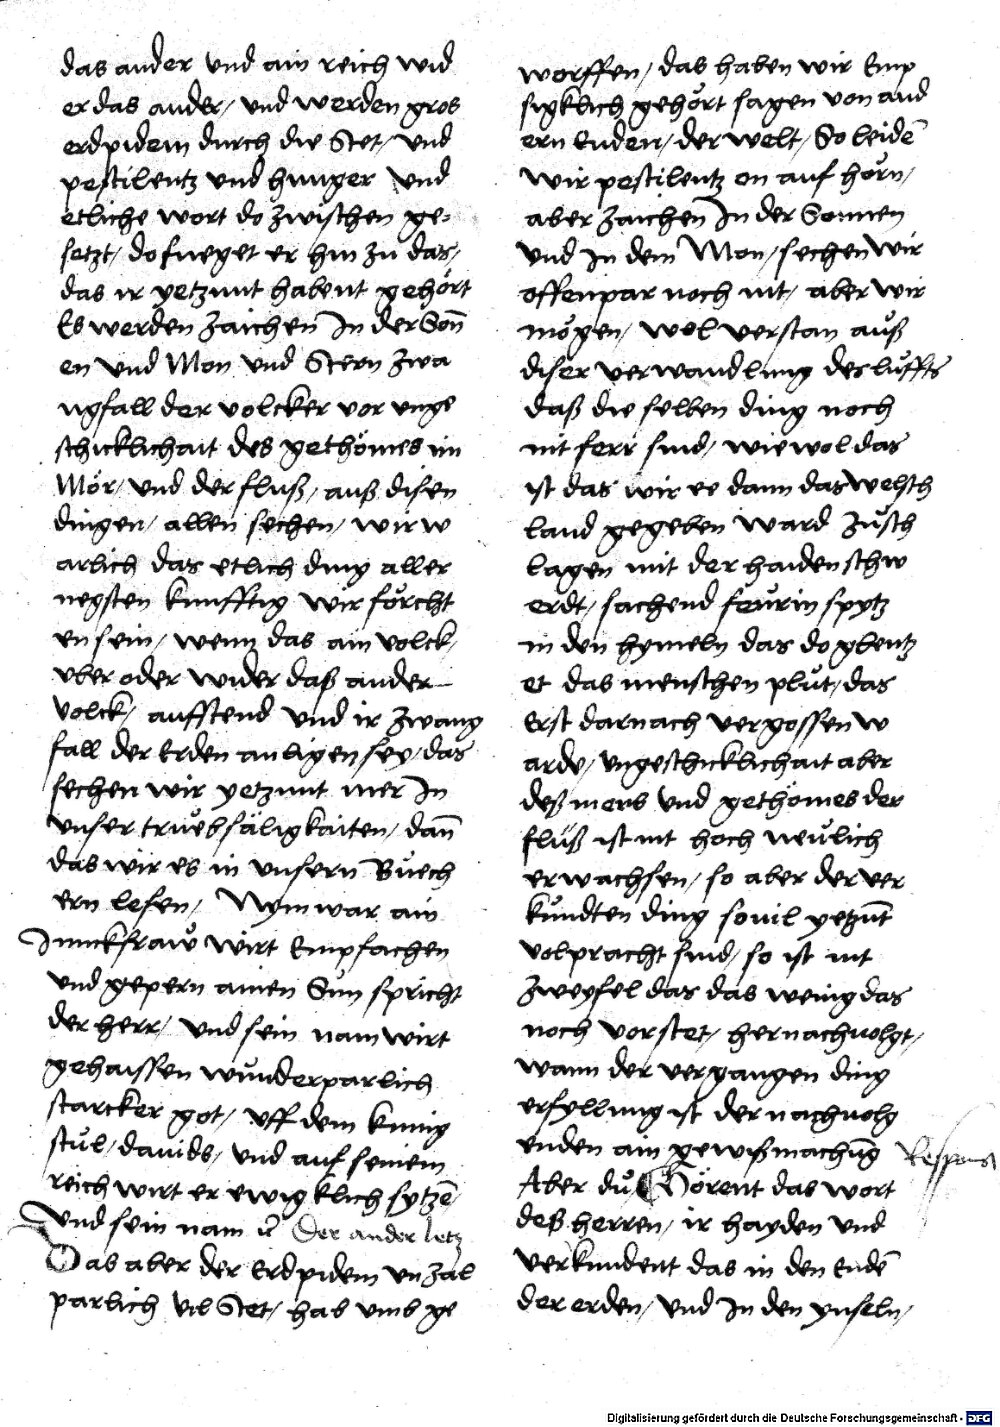 das ander und ain reich wid
er das ander / und werden gros
erdpidem durch die Stet / und
pestilentz und hunger und
etliche wort do zwischen ge-
setzt / do fueget er hin zu das /
das ir yetzunt habent gehört
Es werden zaichen In der Soñ
en und Mon und Stern zwa
ngfall der volcker vor unge
schicklichait des gethömes im
Mör / und der fluß / auß disen
dingen / allen sechen / wir w
arlich das etlich ding aller
negsten kunfftig wir förcht
en sein / wenn das ain volck /
uber oder wider daß ander
volck / auffstend und ir zwang
fall der Erden anligen sey / das
sechen wir yetzunt mer In
unser trüebsäligkaiten / dañ
das wir es in unsern Büech
ern lesen / Nym war ain
Junckfraw wirt Empfachen
und gepern ainen Sun spricht
der herr / und sein nam wirt
gehaissen wunderparlich
starcker got / uff dem kunig
stul / davids / und auf seinem
reich wirt er ewigklich sytzē
und sein nam Der ander letz
Das aber der Erdpidem un zal
parlich vil Stet / hab umb ge
worffen / das haben wir Emp
sigklich gehört sagen von and
ern Enden / der welt / So leidē
wir pestilentz on auf hörn /
aber zaichen In der Sonnen
und In dem Mon / sechen wir
offenpar noch nit / aber wir
mögen / wol verstan auß
diser verwandlung des luffts
daß die selben ding noch
nit ferr sind / wiewol das
ist das wir ee dann das welsch
land gegeben ward zusch
lagen mit der haiden schw
erdt / sachend feürin spytz
in den hymeln das do plentz
et das menschen plut / das
Erst darnach vergossen w
ard / ungeschicklichait aber
deß mers und gethömes der
fluß ist nit hoch neulich
erwachsen / so aber der ver
kundten ding sovil yetzūt
volpracht sind / so ist nit
zweyfel das das wenig das
noch vorstet / hernachvolgt /
wann der vergangen ding
erfyllung ist der nachvolg
enden ain gewißmachūg
Respons
Aber du Hörent das wort
deß herren / ir hayden und
verkundent das in den Endē
der erden / und In den ynseln /
Digitalisierung gefördert durch die Deutsche Forschungsgemeinschaft - DFG